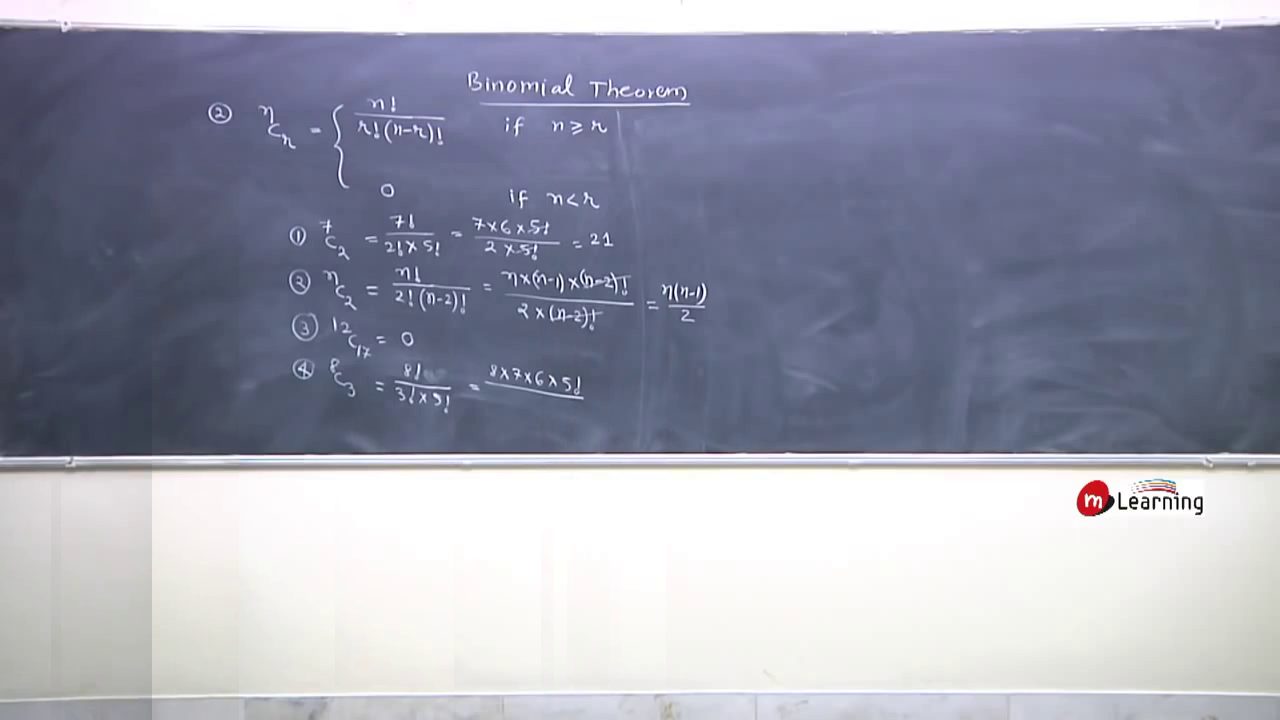 Binomial Theorem
② ⁿCᵣ = { n! / r!(n-r)! if n ≥ r
0 if n < r
① ⁷C₂ = 7! / 2! × 5! = 7×6×5! / 2×5! = 21
② ⁿC₂ = n! / 2!(n-2)! = n×(n-1)×(n-2)! / 2×(n-2)! = n(n-1) / 2
③ ¹²C₁₇ = 0
④ ⁸C₃ = 8! / 3!×5! = 8×7×6×5!
m Learning